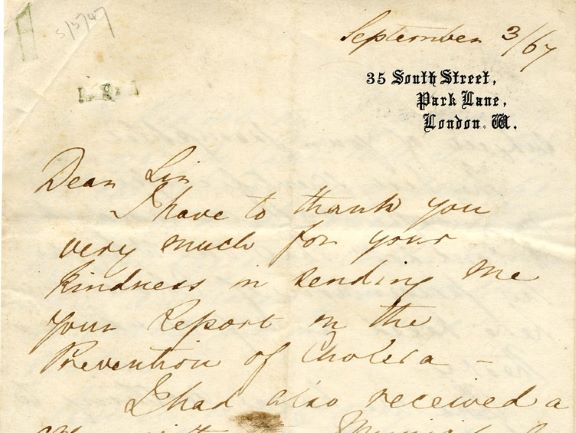 5/5/47
September 3/67
35 South Street,
Park Lane,
London. W.
Dear Sir
I have to thank you
very much for your
kindness in sending me
your Report on the
Prevention of Cholera –
I had also received a